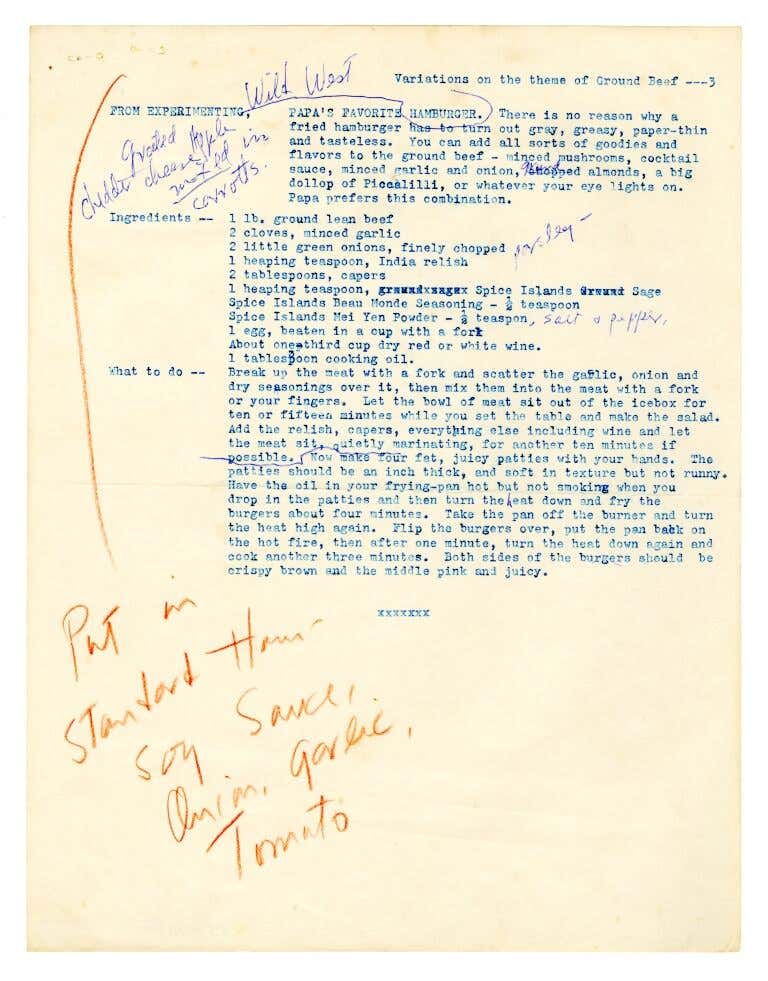 Wild West
Variations on the theme of Ground Beef ---3
FROM EXPERIMENTING, PAPA'S FAVORITE HAMBURGER. There is no reason why a
fried hamburger has to turn out gray, greasy, paper-thin
and tasteless. You can add all sorts of goodies and
flavors to the ground beef - minced mushrooms, cocktail
sauce, minced garlic and onion, chopped almonds, a big
dollop of Piccalilli, or whatever your eye lights on.
Papa prefers this combination.
grated Apple
cheddar cheese
grated in
carrots.
Ingredients -- 1 lb. ground lean beef
2 cloves, minced garlic
2 little green onions, finely chopped parsley
1 heaping teaspoon, India relish
2 tablespoons, capers
1 heaping teaspoon, Spice Islands Sage
Spice Islands Beau Monde Seasoning - ½ teaspoon
Spice Islands Mei Yen Powder - ½ teaspon, salt & pepper,
1 egg, beaten in a cup with a fork
About one-third cup dry red or white wine.
1 tablespoon cooking oil.
What to do -- Break up the meat with a fork and scatter the garlic, onion and
dry seasonings over it, then mix them into the meat with a fork
or your fingers. Let the bowl of meat sit out of the icebox for
ten or fifteen minutes while you set the table and make the salad.
Add the relish, capers, everything else including wine and let
the meat sit, quietly marinating, for another ten minutes if
possible. Now make four fat, juicy patties with your hands. The
patties should be an inch thick, and soft in texture but not runny.
Have the oil in your frying-pan hot but not smoking when you
drop in the patties and then turn the heat down and fry the
burgers about four minutes. Take the pan off the burner and turn
the heat high again. Flip the burgers over, put the pan back on
the hot fire, then after one minute, turn the heat down again and
cook another three minutes. Both sides of the burgers should be
crispy brown and the middle pink and juicy.
xxxxxxx
Put in
Standard Ham-
Soy Sauce,
Onion, garlic,
Tomato